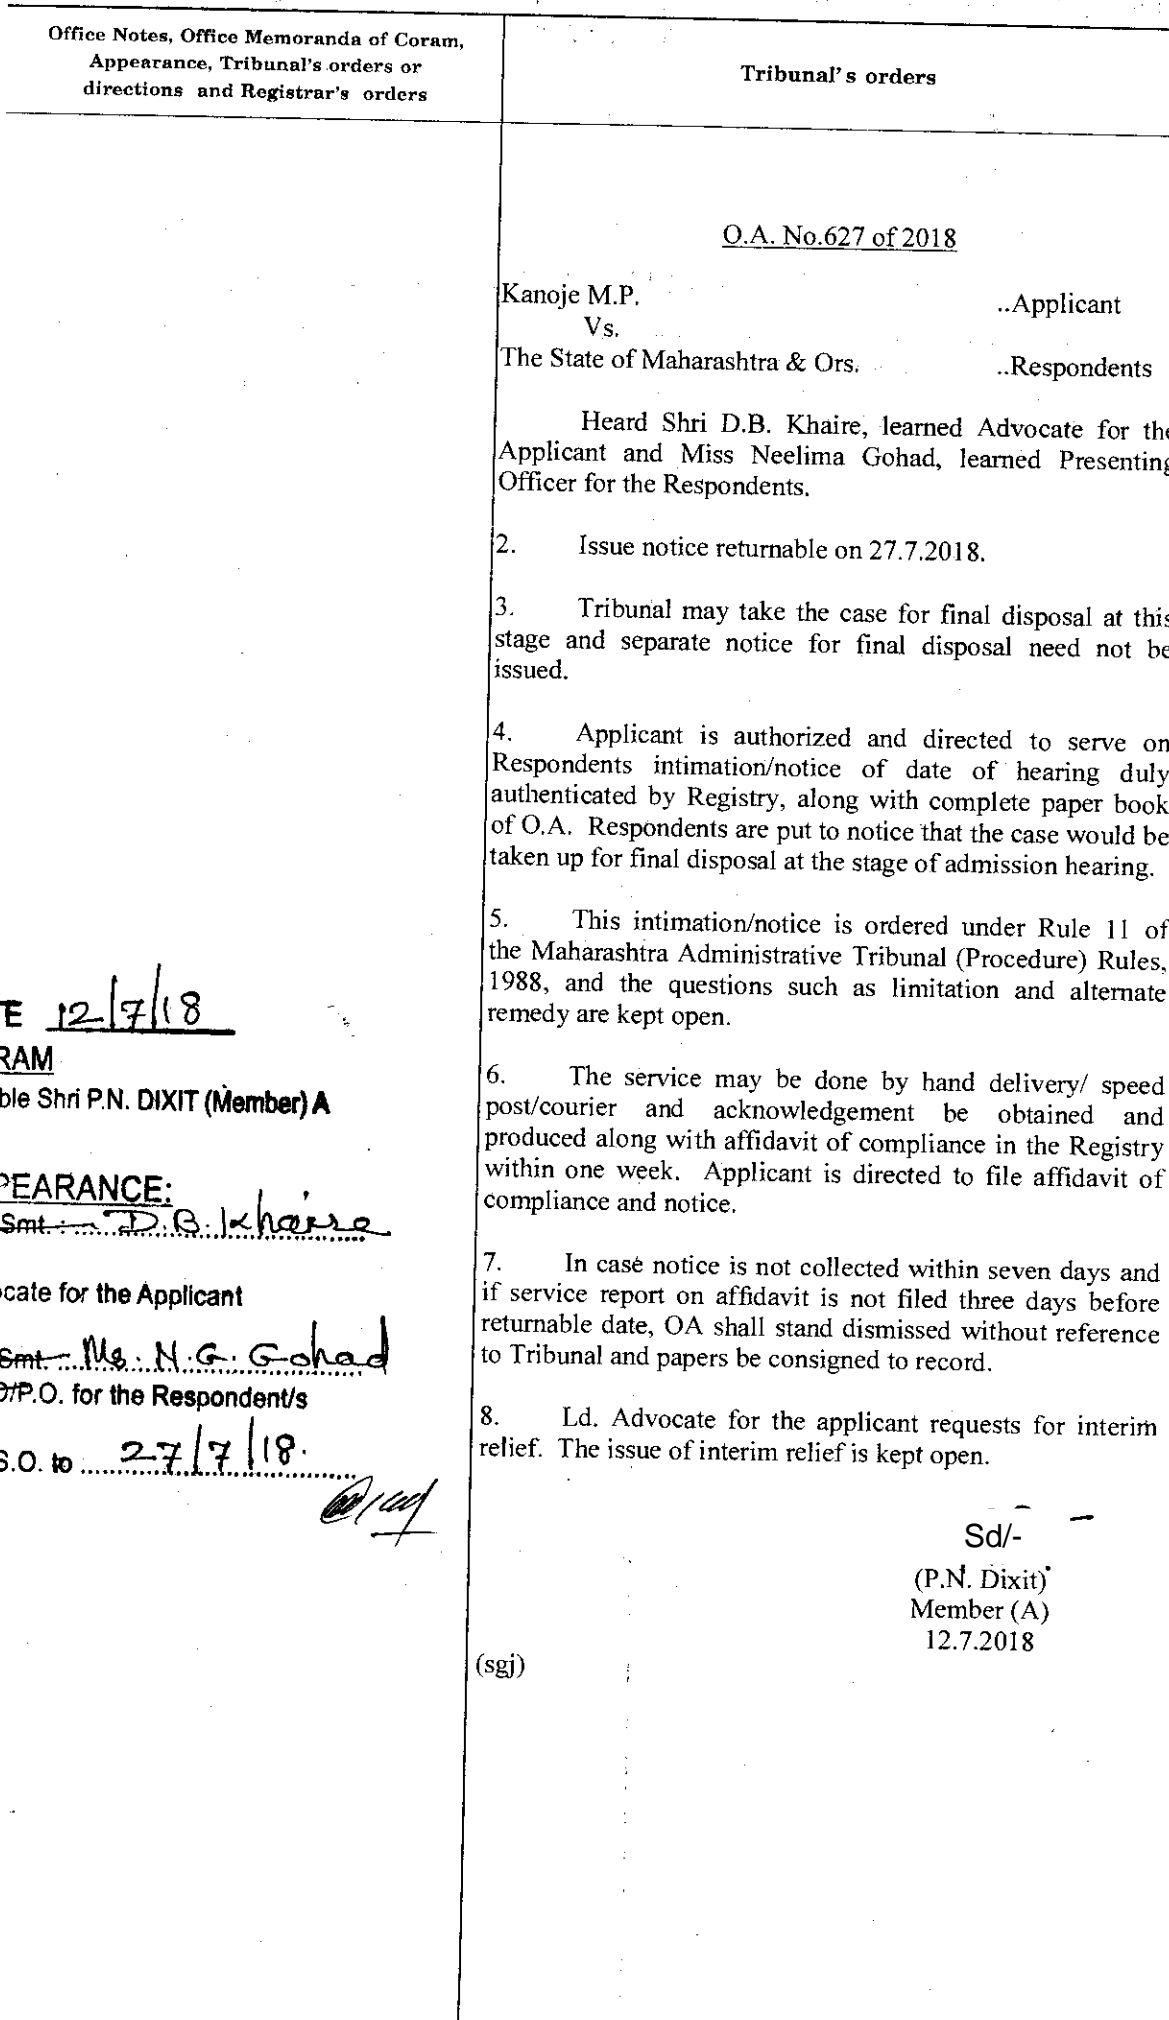 Office Notes, Office Memoranda of Coram,
Appearance, Tribunal's orders or
directions and Registrar's orders
Tribunal's orders
O.A. No.627 of 2018
Kanoje M.P. ..Applicant
Vs.
The State of Maharashtra & Ors. ..Respondents
Heard Shri D.B. Khaire, learned Advocate for the
Applicant and Miss Neelima Gohad, learned Presenting
Officer for the Respondents.
2. Issue notice returnable on 27.7.2018.
3. Tribunal may take the case for final disposal at this
stage and separate notice for final disposal need not be
issued.
4. Applicant is authorized and directed to serve on
Respondents intimation/notice of date of hearing duly
authenticated by Registry, along with complete paper book
of O.A. Respondents are put to notice that the case would be
taken up for final disposal at the stage of admission hearing.
5. This intimation/notice is ordered under Rule 11 of
the Maharashtra Administrative Tribunal (Procedure) Rules,
1988, and the questions such as limitation and alternate
remedy are kept open.
6. The service may be done by hand delivery/ speed
post/courier and acknowledgement be obtained and
produced along with affidavit of compliance in the Registry
within one week. Applicant is directed to file affidavit of
compliance and notice.
7. In case notice is not collected within seven days and
if service report on affidavit is not filed three days before
returnable date, OA shall stand dismissed without reference
to Tribunal and papers be consigned to record.
8. Ld. Advocate for the applicant requests for interim
relief. The issue of interim relief is kept open.
Sd/-
(P.N. Dixit)
Member (A)
12.7.2018
(sgj)
TE 12/7/18
RAM
ble Shri P.N. DIXIT (Member) A
PEARANCE:
Smt. D.B. Khaire
ocate for the Applicant
Smt. Ms. N.G. Gohad
O/P.O. for the Respondent/s
S.O. to 27/7/18.